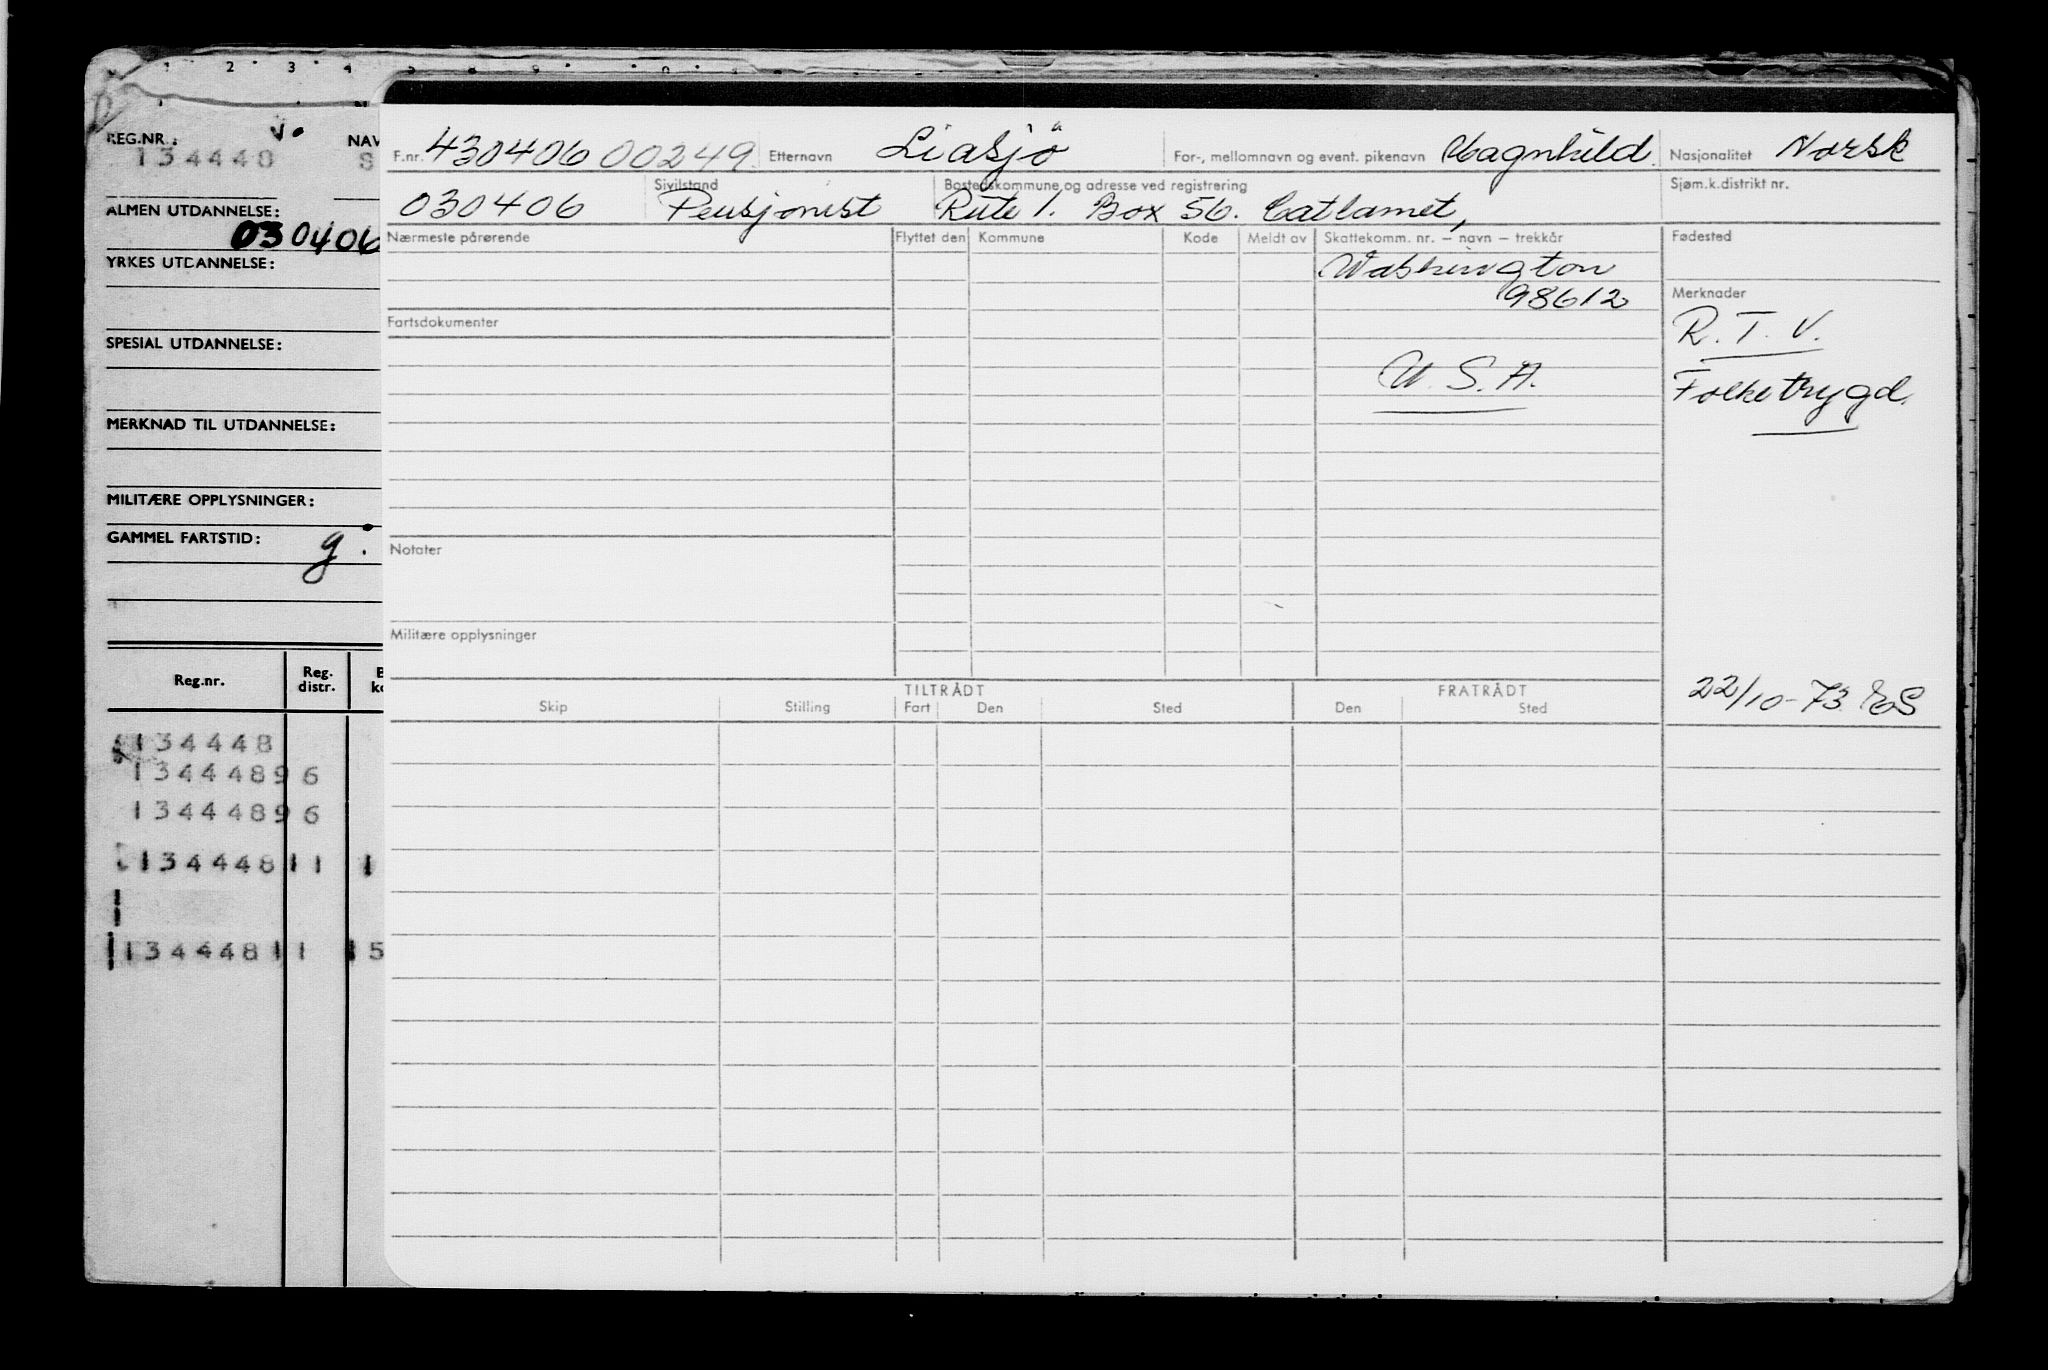 1 2 3 4 5 8 9
REG.NR.: NAV
134448 S
ALMEN UTDANNELSE:
030406
YRKES UTDANNELSE:
SPESIAL UTDANNELSE:
MERKNAD TIL UTDANNELSE:
MILITÆRE OPPLYSNINGER:
GAMMEL FARTSTID: g.
Reg.nr. Reg. distr. B ko
134448
13444896
13444896
13444811 1
13444811 15
F.nr. 430406 00249 Etternavn Liasjö For-, mellomnavn og event. pikenavn Magnhild Nasjonalitet Norsk
Sivilstand Bostedskommune og adresse ved registrering Sjøm.k.distrikt nr.
030406 Pensjonist Rute 1. Box 56. Catlamet,
Nærmeste pårørende Flyttet den Kommune Kode Meldt av Skattekomm. nr. – navn – trekkår Fødested
Washington
98612
Merknader
Fartsdokumenter R. T. V.
U. S. A. Folketrygd.
Notater
Militære opplysninger
22/10-73 ES
TILTRÅDT FRATRÅDT
Skip Stilling Fart Den Sted Den Sted